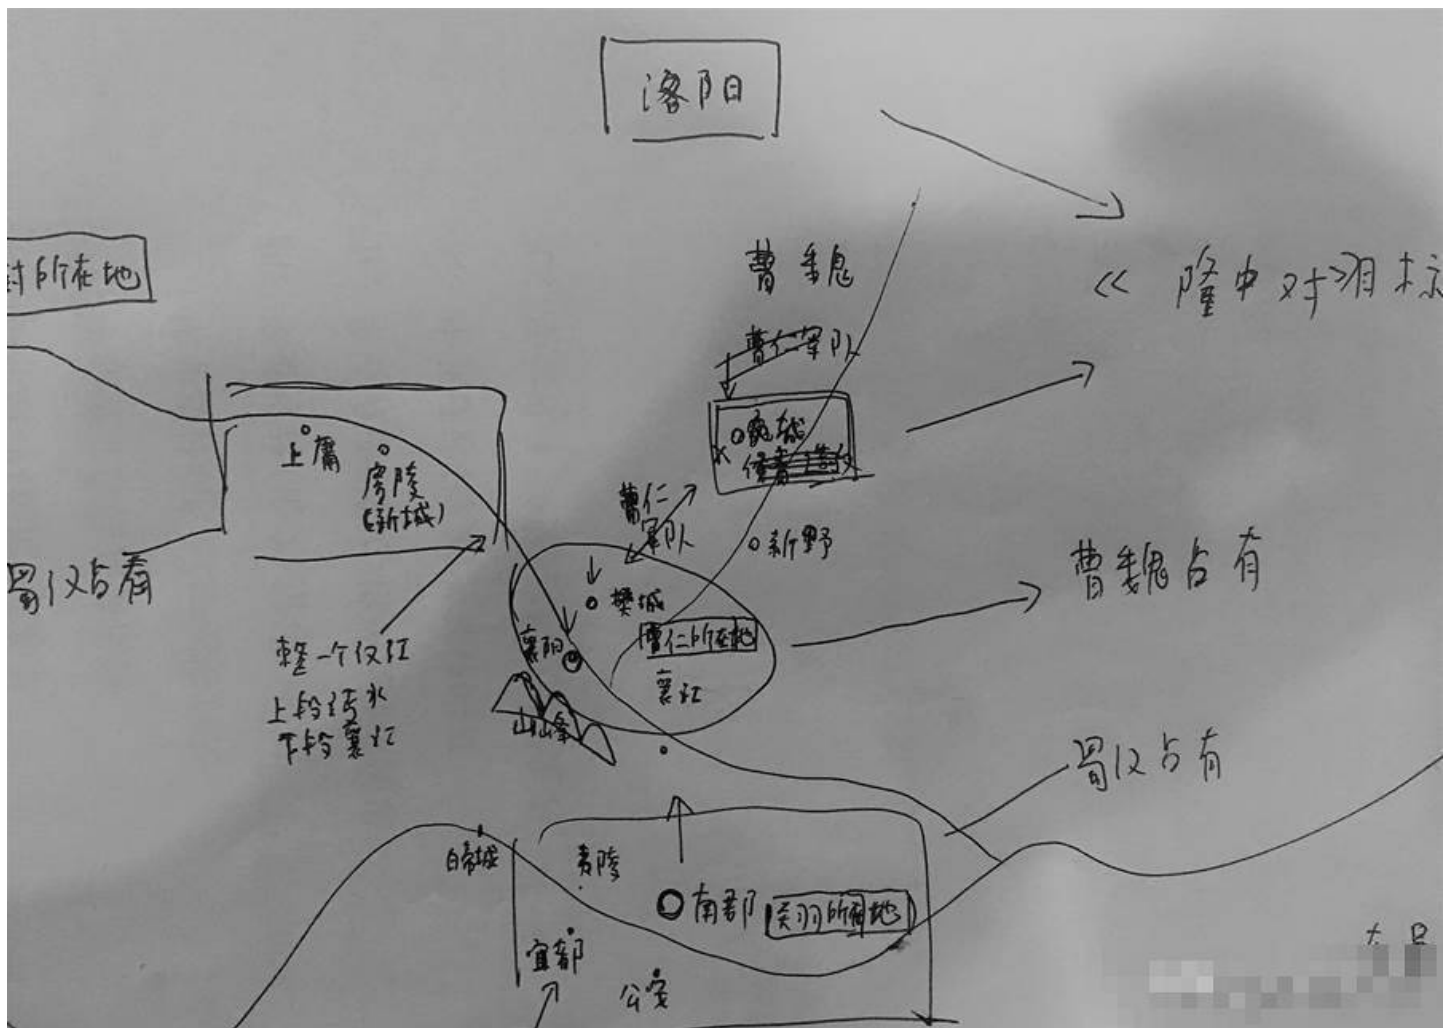 洛阳
封所在地
曹魏
《隆中对》目标
曹仁军队
上庸
房陵
(新城)
宛城
侯音造反
曹仁
军队
新野
蜀汉占有
樊城
曹仁所在地
襄阳
襄江
曹魏占有
整个汉江
上段沔水
下段襄江
山峰
蜀汉占有
白帝城
夷陵
南郡
关羽所在地
宜都
公安